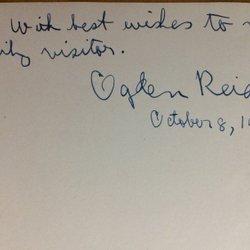 With best wishes to
visitor.
Ogden Reid
October 8, 1